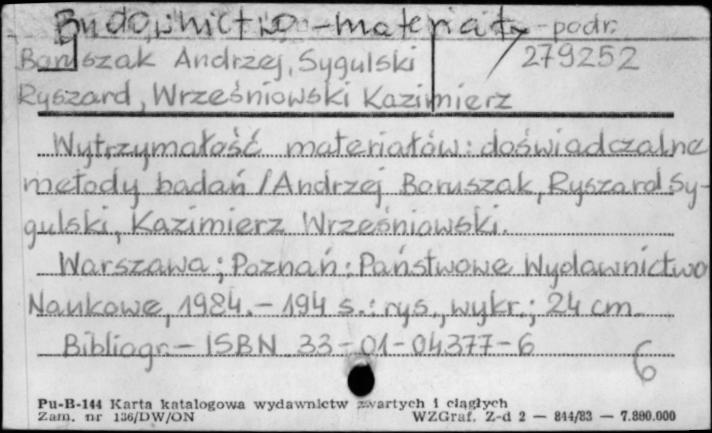 Budownictwo - materiały - podr.
Baruszak Andrzej, Sygulski 279252
Ryszard, Wrześniowski Kazimierz
Wytrzymałość materiałów: doświadczalne
metody badań / Andrzej Baruszak, Ryszard Sy-
gulski, Kazimierz Wrześniowski.
Warszawa ; Poznań : Państwowe Wydawnictwo
Naukowe, 1984. - 194 s. : rys., wykr. ; 24 cm.
Bibliogr. - ISBN 83-01-04377-6
6
Pu-B-144 Karta katalogowa wydawnictw zwartych i ciągłych
Zam. nr 136/DW/ON WZGraf. Z-d 2 — 844/83 — 7.800.000